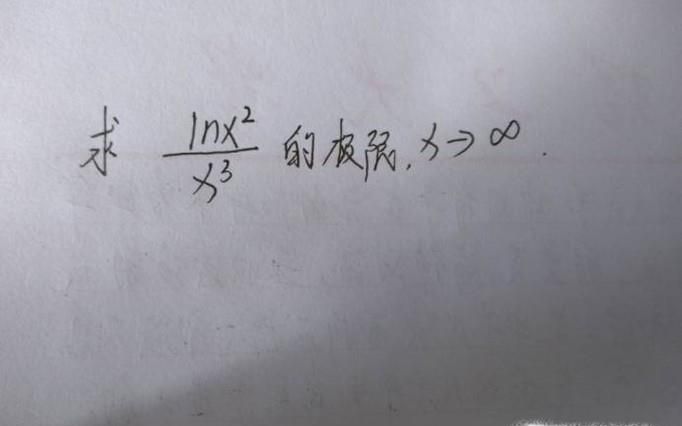 求 \frac{lnx^2}{x^3} 的极限, x→∞.